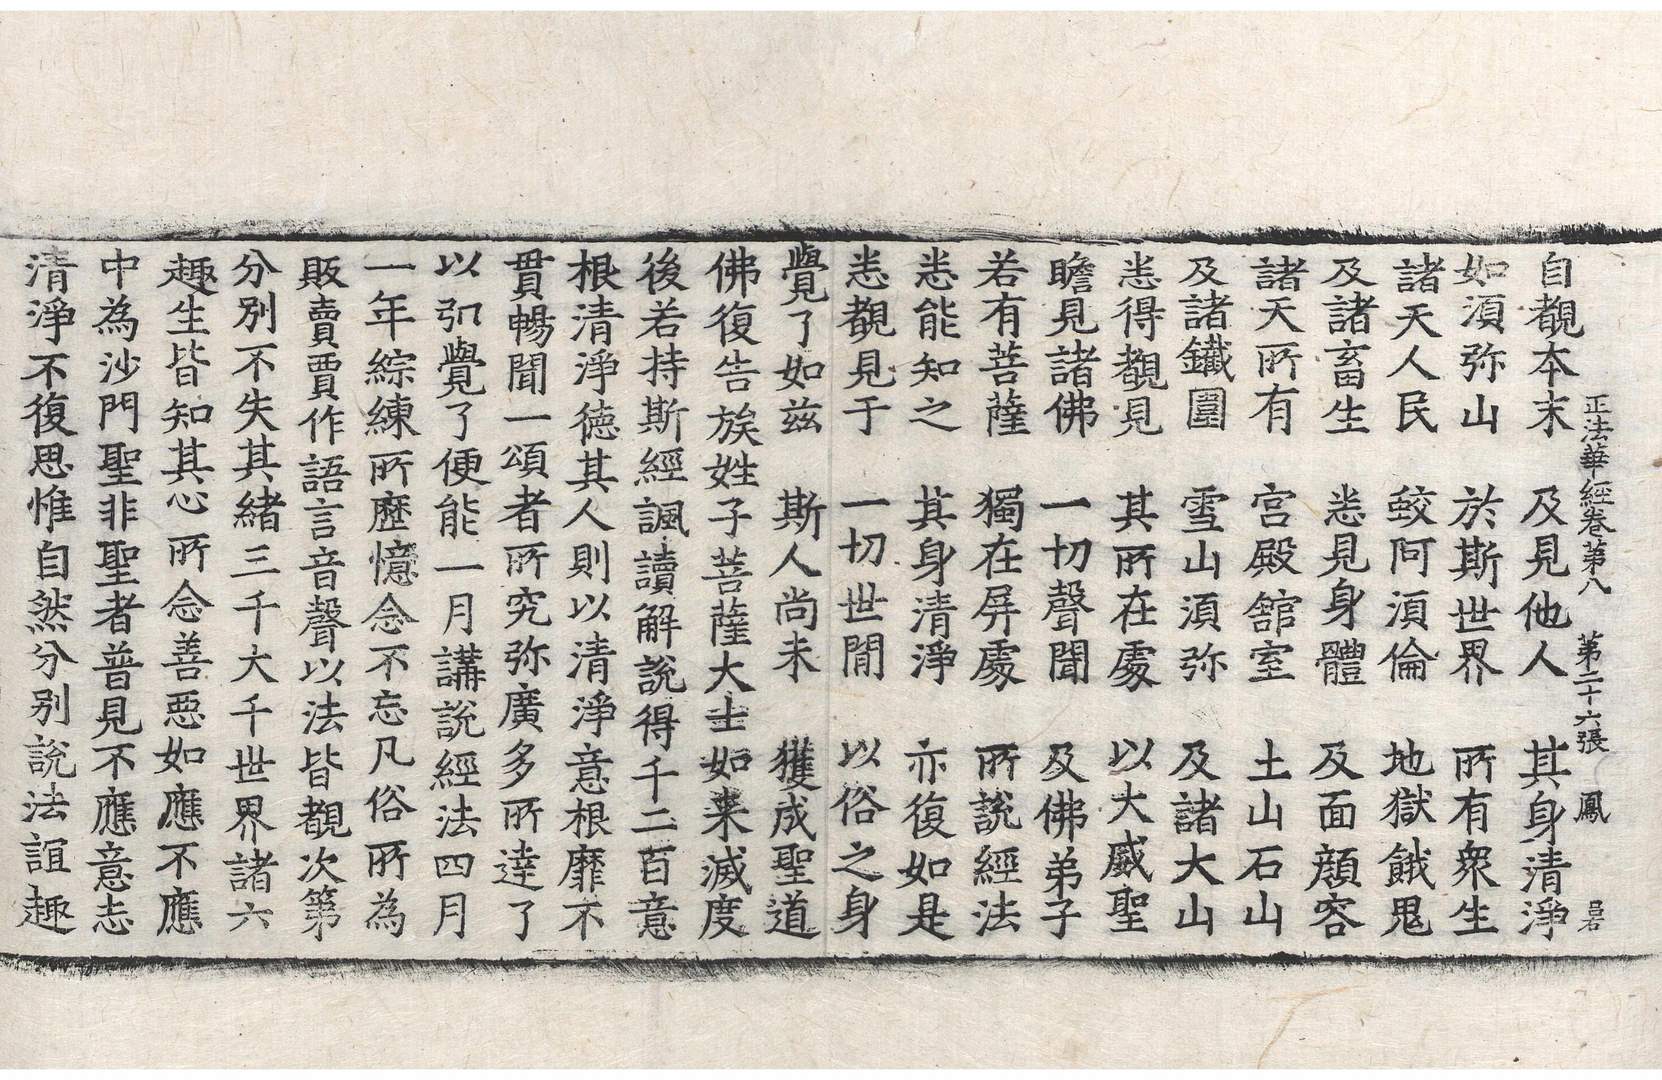 正法華經卷第八 第二十六張 鳳
自覩本末 及見他人 其身清淨
如湏弥山 於斯世界 所有衆生
諸天人民 蛟阿湏倫 地獄餓鬼
及諸畜生 悉見身體 及面顔容
諸天所有 宮殿舘室 土山石山
及諸鐵圍 雪山湏弥 及諸大山
悉得覩見 其所在處 以大威聖
瞻見諸佛 一切聲聞 及佛弟子
若有菩薩 獨在屏處 所說經法
悉能知之 其身清淨 亦復如是
悉覩見于 一切世閒 以俗之身
覺了如兹 斯人尚未 獲成聖道
佛復告族姓子菩薩大士如来滅度
後若持斯經諷讀解說得千二百意
根清淨徳其人則以清淨意根靡不
貫暢聞一頌者所究弥廣多所達了
以弘覺了便能一月講說經法四月
一年綜練所歷憶念不忘凡俗所為
販賣賈作語言音聲以法皆覩次第
分別不失其緒三千大千世界諸六
趣生皆知其心所念善惡如應不應
中為沙門聖非聖者普見不應意志
清淨不復思惟自然分别說法誼趣